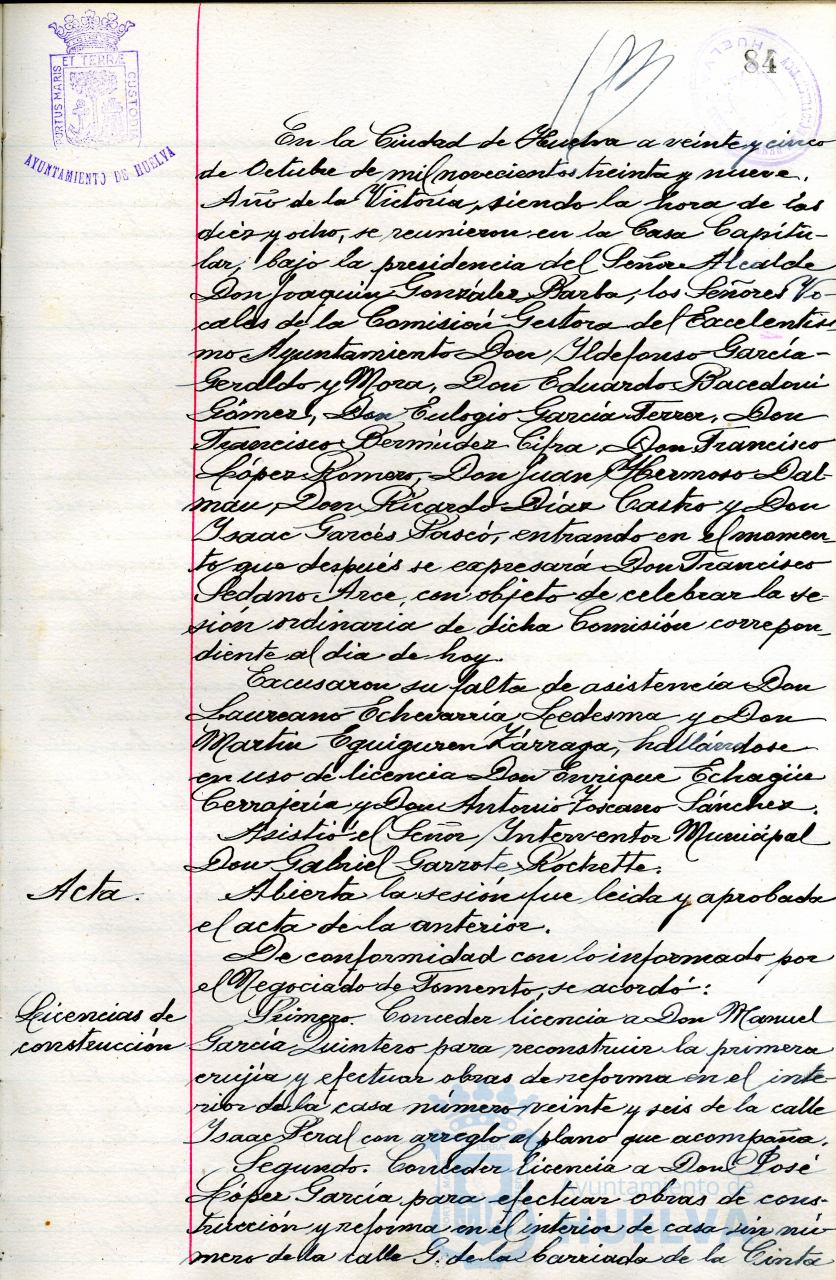 PORTUS MARIS ET TERRÆ CUSTODIA
AYUNTAMIENTO DE HUELVA
84
En la Ciudad de Huelva a veinte y cinco
de Octubre de mil novecientos treinta y nueve.
Año de la Victoria, siendo la hora de las
diez y ocho, se reunieron en la Casa Capitu-
lar, bajo la presidencia del Señor Alcalde
Don Joaquin González Barba, los Señores Vo-
cales de la Comisión Gestora del Excelentísi-
mo Ayuntamiento Don Ildefonso García-
Geraldo y Mora, Don Eduardo Bacedoni
Gómez, Don Eulogio García Ferrer, Don
Francisco Bermúdez Cifra, Don Francisco
López Romero, Don Juan Hermoso Dal-
máu, Don Ricardo Díaz Castro y Don
Isaac Garcés Pascó, entrando en el momen-
to que después se expresará Don Francisco
Sedano Arce, con objeto de celebrar la se-
sión ordinaria de dicha Comisión correpon-
diente al dia de hoy.
Excusaron su falta de asistencia Don
Laureano Echevarría Ledesma y Don
Martín Eguiguren Zárraga, hallándose
en uso de licencia Don Enrique Echagüe
Cerrajería y Don Antonio Toscano Sánchez.
Asistió el Señor Interventor Municipal
Don Gabriel Garrote Rochette.
Acta.
Abierta la sesión fue leida y aprobada
el acta de la anterior.
De conformidad con lo informado por
el Negociado de Fomento, se acordó:
Licencias de
construcción
Primero. Conceder licencia a Don Manuel
García Quintero para reconstruir la primera
crujía y efectuar obras de reforma en el inte-
rior de la casa número veinte y seis de la calle
Isaac Peral con arreglo al plano que acompaña.
Segundo. Conceder licencia a Don José
López García para efectuar obras de cons-
trucción y reforma en el interior de casa sin nú-
mero de la calle G. de la barriada de la Cinta
Ayuntamiento de
HUELVA